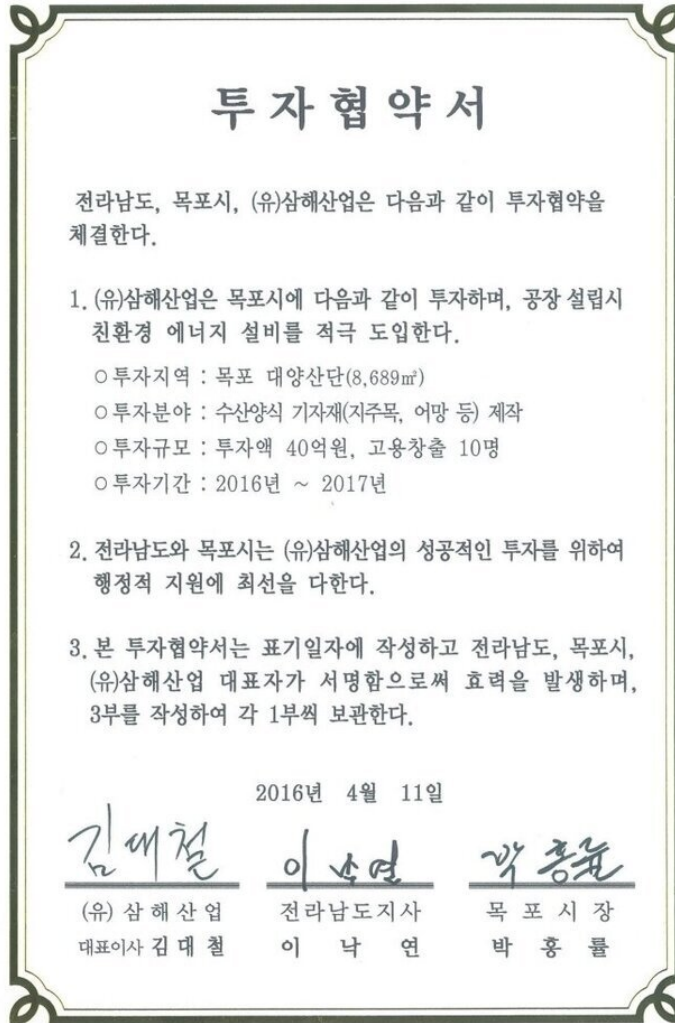 투자협약서
전라남도, 목포시, (유)삼해산업은 다음과 같이 투자협약을
체결한다.
1. (유)삼해산업은 목포시에 다음과 같이 투자하며, 공장 설립시
친환경 에너지 설비를 적극 도입한다.
○ 투자지역 : 목포 대양산단(8,689㎡)
○ 투자분야 : 수산양식 기자재(지주목, 어망 등) 제작
○ 투자규모 : 투자액 40억원, 고용창출 10명
○ 투자기간 : 2016년 ~ 2017년
2. 전라남도와 목포시는 (유)삼해산업의 성공적인 투자를 위하여
행정적 지원에 최선을 다한다.
3. 본 투자협약서는 표기일자에 작성하고 전라남도, 목포시,
(유)삼해산업 대표자가 서명함으로써 효력을 발생하며,
3부를 작성하여 각 1부씩 보관한다.
2016년 4월 11일
김대철 이낙연 박홍률
(유) 삼해산업 전라남도지사 목포시장
대표이사 김대철 이낙연 박홍률